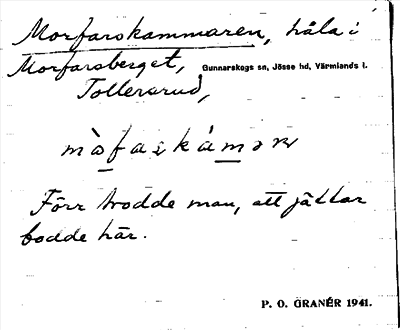 Morfarskammaren, håla i
Morfarsberget, Gunnarskogs sn, Jösse hd, Värmlands l.
Tollersrud,
Förr trodde man, att jättar
bodde här.
P. O. GRANÉR 1941.